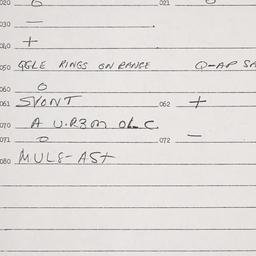 020 O 021 O
030 —
040 +
050 QGLE RINGS ON RANGE Q-AP SA
060 O
061 SVONT 062 +
070 A U.R3M OLC
071 O 072 —
080 MULE-AST